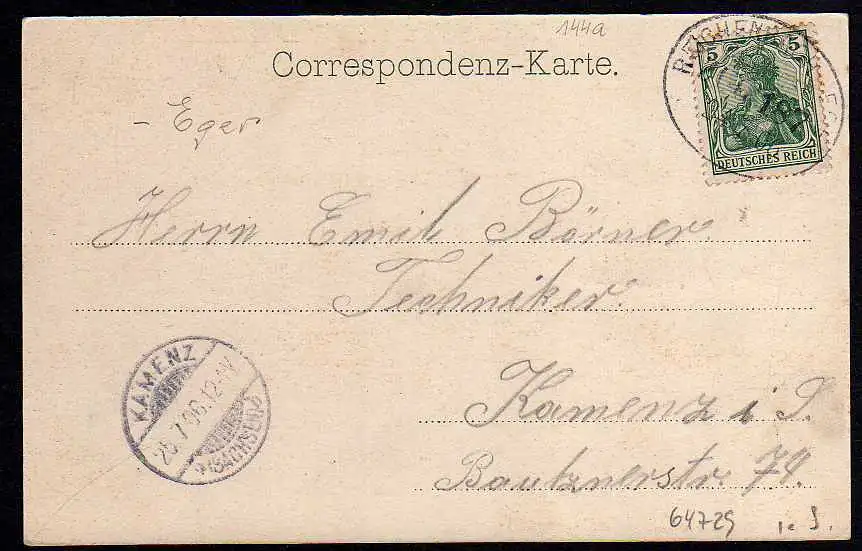 144a
Correspondenz-Karte.
5 5
DEUTSCHES REICH
- Eger
Herrn Emil Börner
Techniker.
Kamenz i S.
Bautznerstr. 74.
KAMENZ
(SACHSEN)
64729